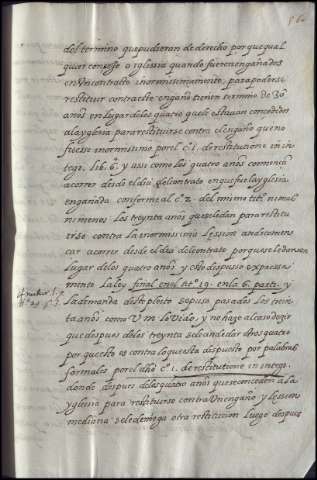 del termino que pudieran de derecho porque qual
quier consejo o yglessia quando fueren engañados
en Un contratto ynormissimamente, para poderse
restituir contra este engaño tienen termino de 30
años en lugar de los quatro que le estavan concedidos
a la yglesia para restituirse contra el engaño que no
fuesse inormissimo por el c. 1. de restitutione in in
tegr. lib. 6. y assi como los quatro años comiençan
a correr desde el dia del contrato en que fue la yglesia
engañada conforme al c. 2. del mismo titº ni mas
ni menos los treynta años que se le dan para restitu
irse contra la ynormissima lession an de comen
çar a correr desde el dia del contrato porque se le dan en
lugar de los quatro años y esto dispuso expressa
mente la ley final en el titº 19. en la 6. parti. y
la demanda deste pleito se puso passados los trein
ta años como V m lo vido, y no haze al caso dezir
que despues de los treynta se le an de dar otros quatro
por que esto es contra lo que esta dispuesto por palabras
formales por el dho c. 1. de restitutione in integr.
donde despues de los quatro años que se conceden a la
yglesia para restituirse contra Un engaño y lession
mediana se le deniega otra restitucion luego despues